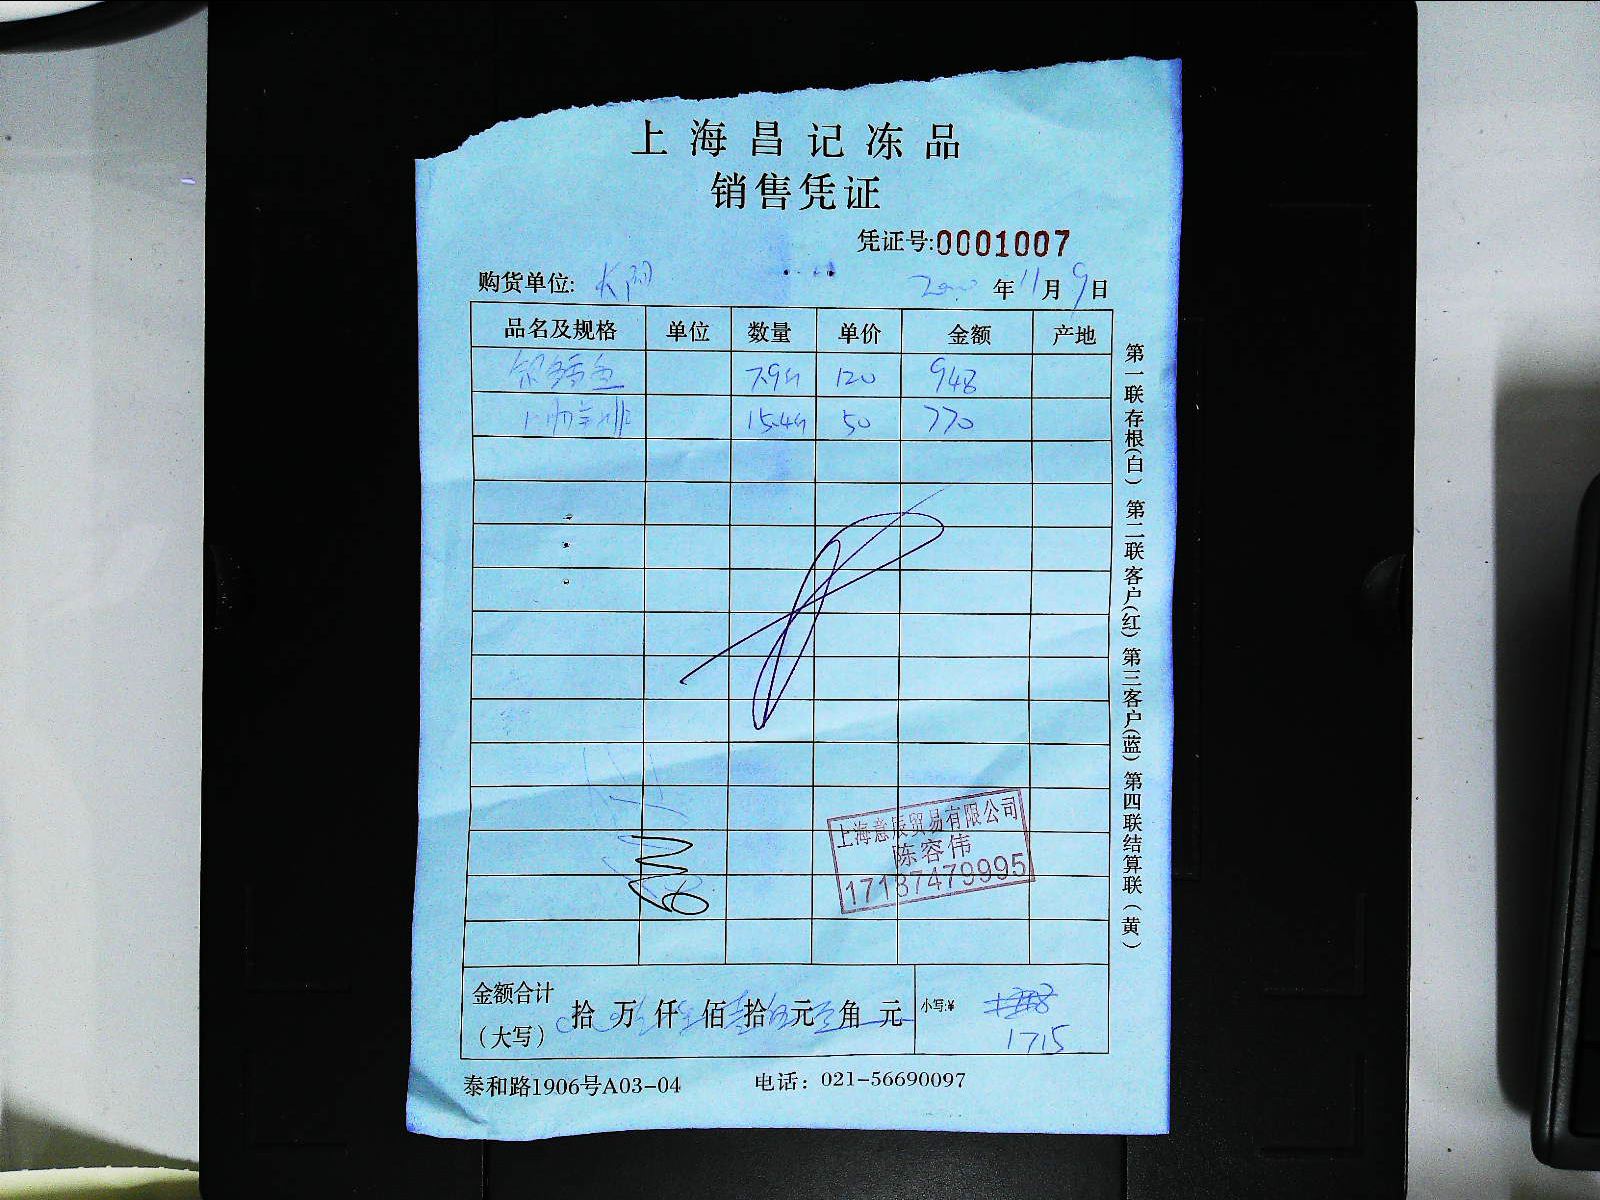 上海昌记冻品
销售凭证
凭证号:0001007
购货单位: 年11月9日
品名及规格 单位 数量 单价 金额 产地
银鳕鱼 7.9 120 948
羊排 15.4 50 770
上海意辰贸易有限公司
陈容伟
17187479995
金额合计
(大写) 拾 万 仟 佰 拾 元 角 元 小写:¥
1715
泰和路1906号A03-04 电话: 021-56690097
第一联存根(白) 第二联客户(红) 第三客户(蓝) 第四联结算联(黄)